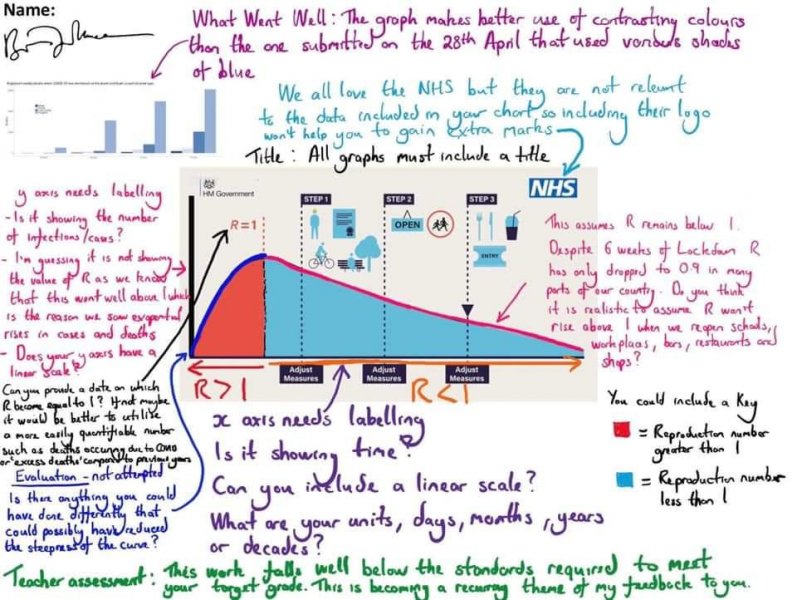 Name:
What Went Well: The graph makes better use of contrasting colours
than the one submitted on the 28th April that used various shades
of blue
We all love the NHS but they are not relevant
to the data included in your chart so including their logo
won't help you to gain extra marks
Title: All graphs must include a title
HM Government
NHS
R=1
STEP 1
STEP 2
STEP 3
OPEN
ENTRY
Adjust
Measures
Adjust
Measures
Adjust
Measures
R>1
R<1
y axis needs labelling
- Is it showing the number
of infections/cases?
- I'm guessing it is not showing
the value of R as we know
that this went well above 1 which
is the reason we saw exponential
rises in cases and deaths
- Does your y axis have a
linear scale?
Can you provide a date on which
R became equal to 1? If not maybe
it would be better to utilise
a more easily quantifiable number
such as deaths occuring due to COVID
or 'excess deaths' compared to previous years
Evaluation - not attempted
Is there anything you could
have done differently that
could possibly have reduced
the steepness of the curve?
This assumes R remains below 1.
Despite 6 weeks of Lockdown R
has only dropped to 0.9 in many
parts of our country. Do you think
it is realistic to assume R won't
rise above 1 when we reopen schools,
workplaces, bars, restaurants and
shops?
x axis needs labelling
Is it showing time?
Can you include a linear scale?
What are your units, days, months, years
or decades?
You could include a Key
= Reproduction number
greater than 1
= Reproduction number
less than 1
Teacher assessment: This work falls well below the standards required to meet
your target grade. This is becoming a recurring theme of my feedback to you.